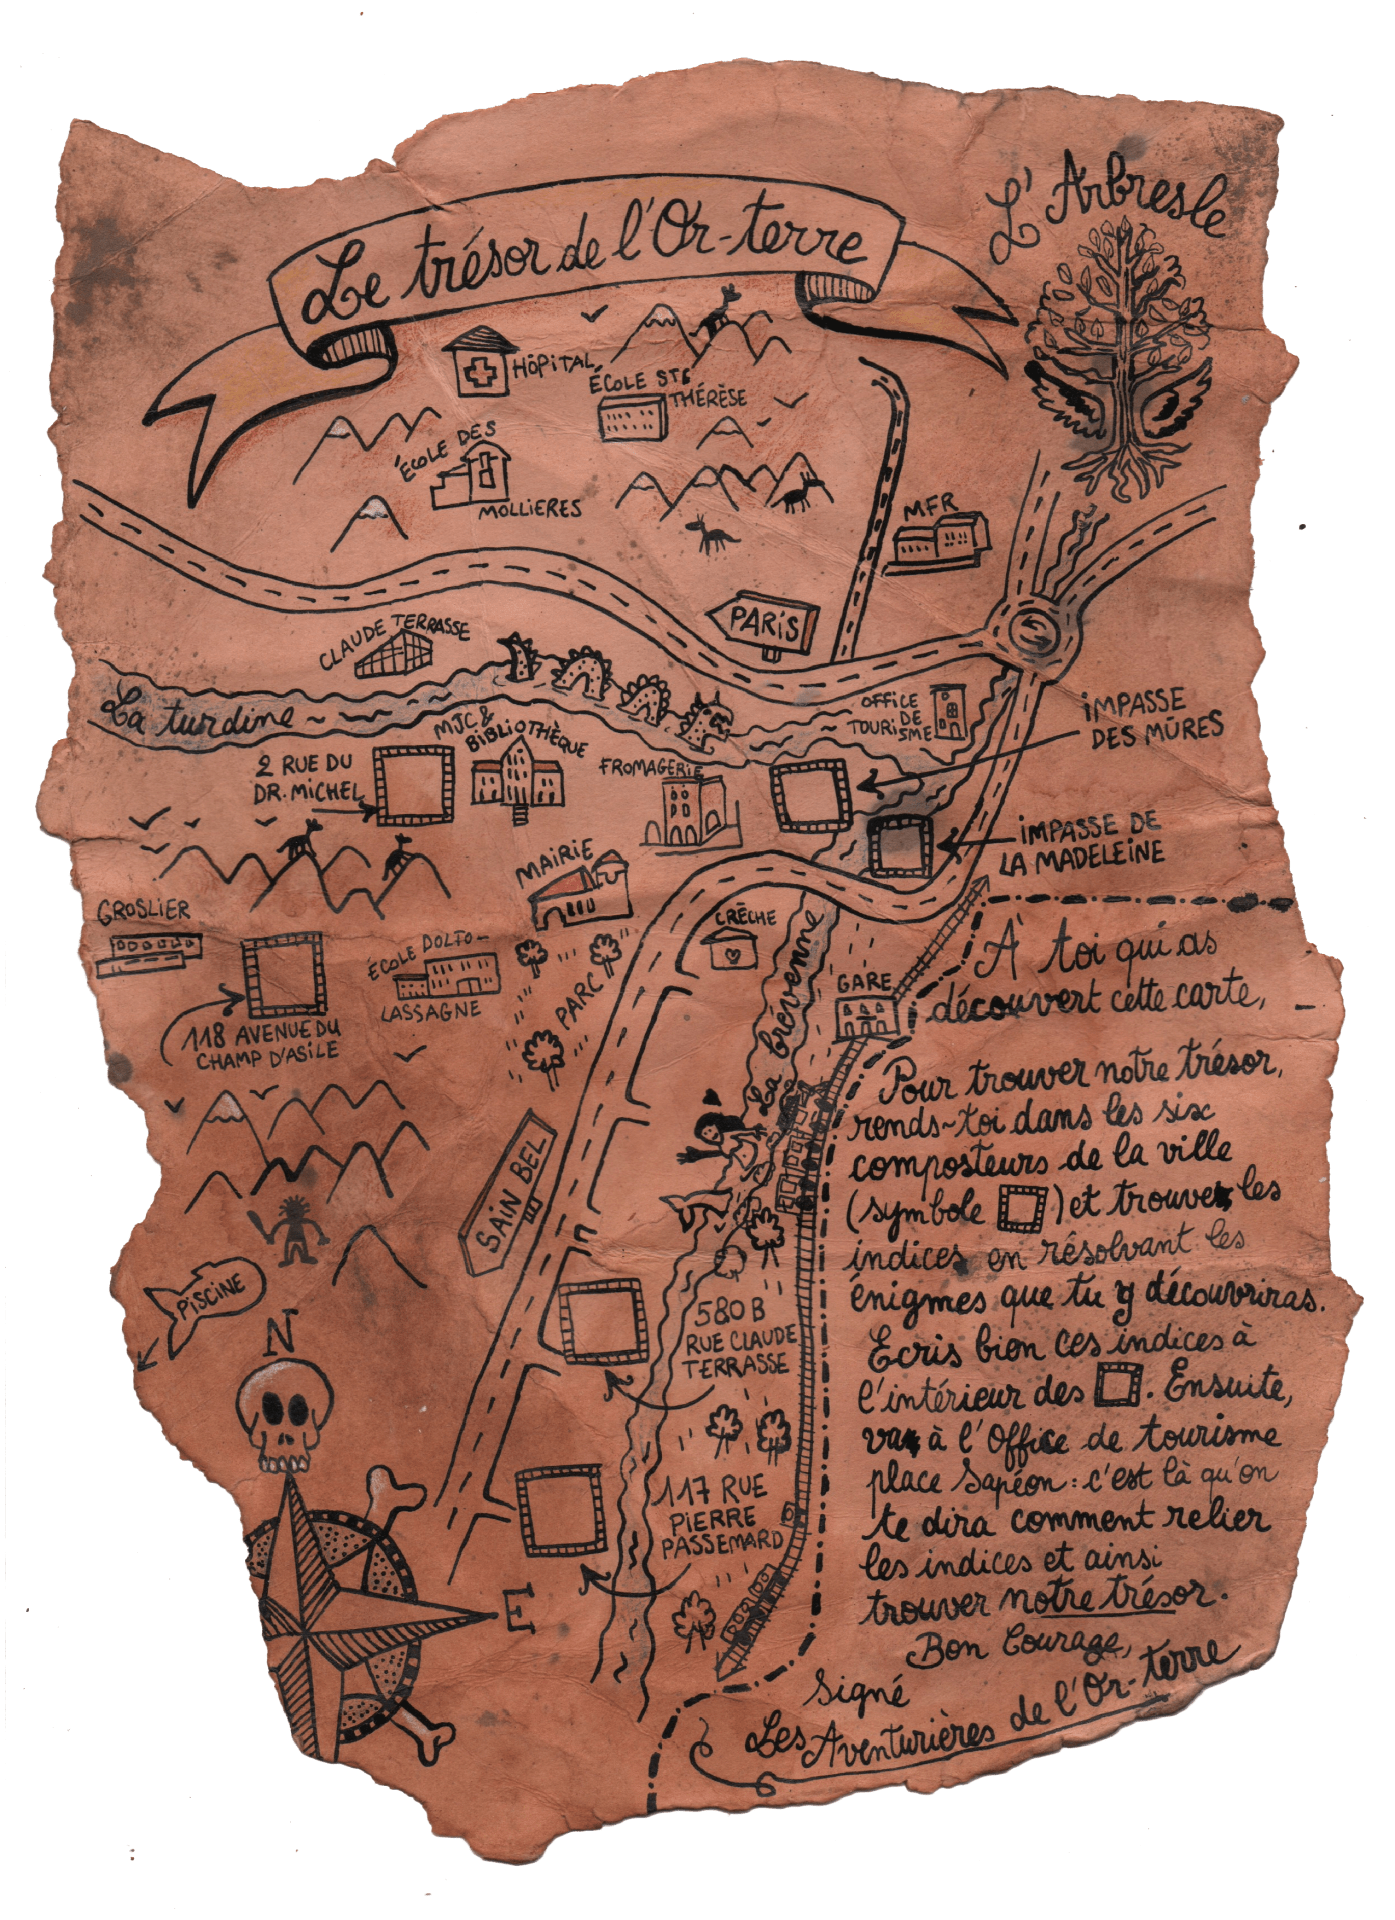 L'Arbresle
Le trésor de l'Or-terre
HÔPITAL
ÉCOLE STE
THÉRÈSE
ÉCOLE DES
MOLLIERES
MFR
PARIS
CLAUDE TERRASSE
La turdine
OFFICE
DE
TOURISME
IMPASSE
DES MÛRES
MJC &
BIBLIOTHÈQUE
2 RUE DU
DR. MICHEL
FROMAGERIE
IMPASSE DE
LA MADELEINE
MAIRIE
GROSLIER
CRÈCHE
ÉCOLE DOLTO-
LASSAGNE
PARC
La brevenne
GARE
118 AVENUE DU
CHAMP D'ASILE
SAIN BEL
PISCINE
N
580 B
RUE CLAUDE
TERRASSE
117 RUE
PIERRE
PASSEMARD
E
À toi qui as
découvert cette carte,
Pour trouver notre trésor,
rends-toi dans les six
composteurs de la ville
(symbole ) et trouve les
indices en résolvant les
énigmes que tu y découvriras.
Ecris bien ces indices à
l'intérieur des . Ensuite,
va à l'Office de tourisme
place Sapéon : c'est là qu'on
te dira comment relier
les indices et ainsi
trouver notre trésor.
Bon Courage,
Signé
Les Aventurières de l'Or-terre